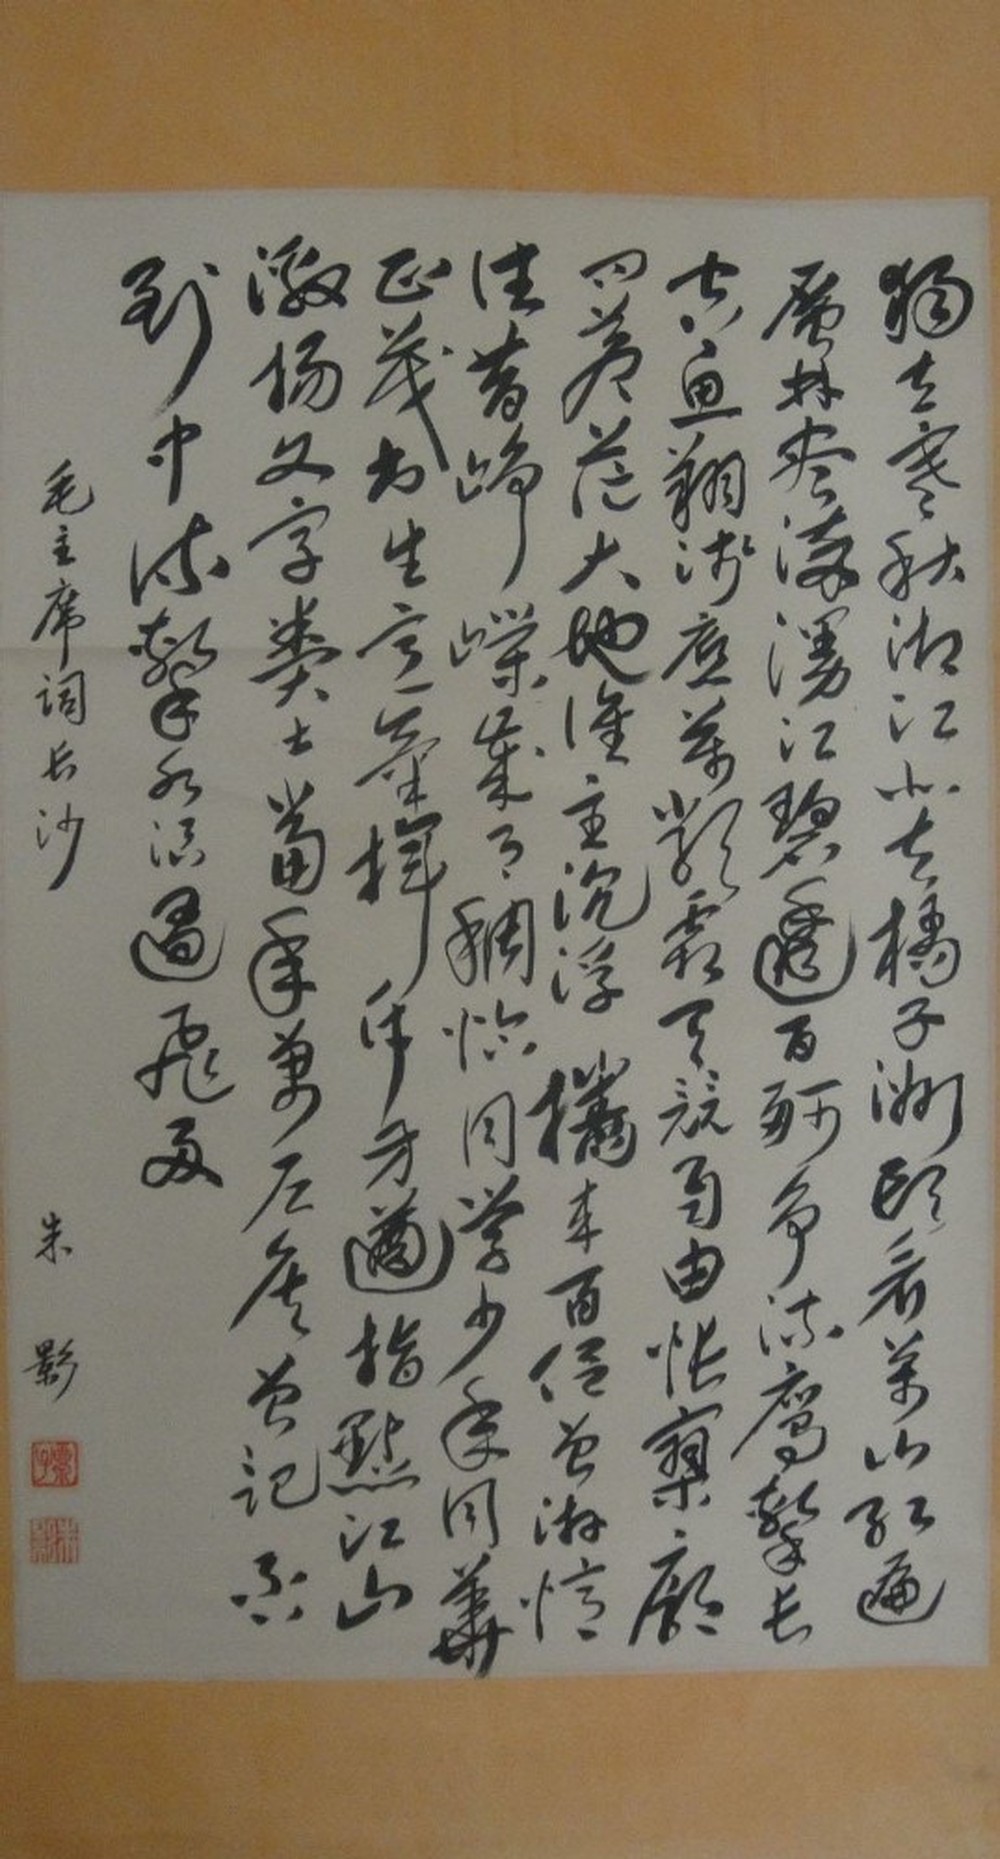 独立寒秋湘江北去橘子洲头看万山红遍
层林尽染漫江碧透百舸争流鹰击长
空鱼翔浅底万类霜天竞自由怅寥廓
问苍茫大地谁主沉浮携来百侣曾游忆
往昔峥嵘岁月稠恰同学少年风华
正茂书生意气挥斥方遒指點江山
激扬文字粪土当年万户侯曾记否
到中流击水浪遏飞舟
毛主席词长沙
朱影